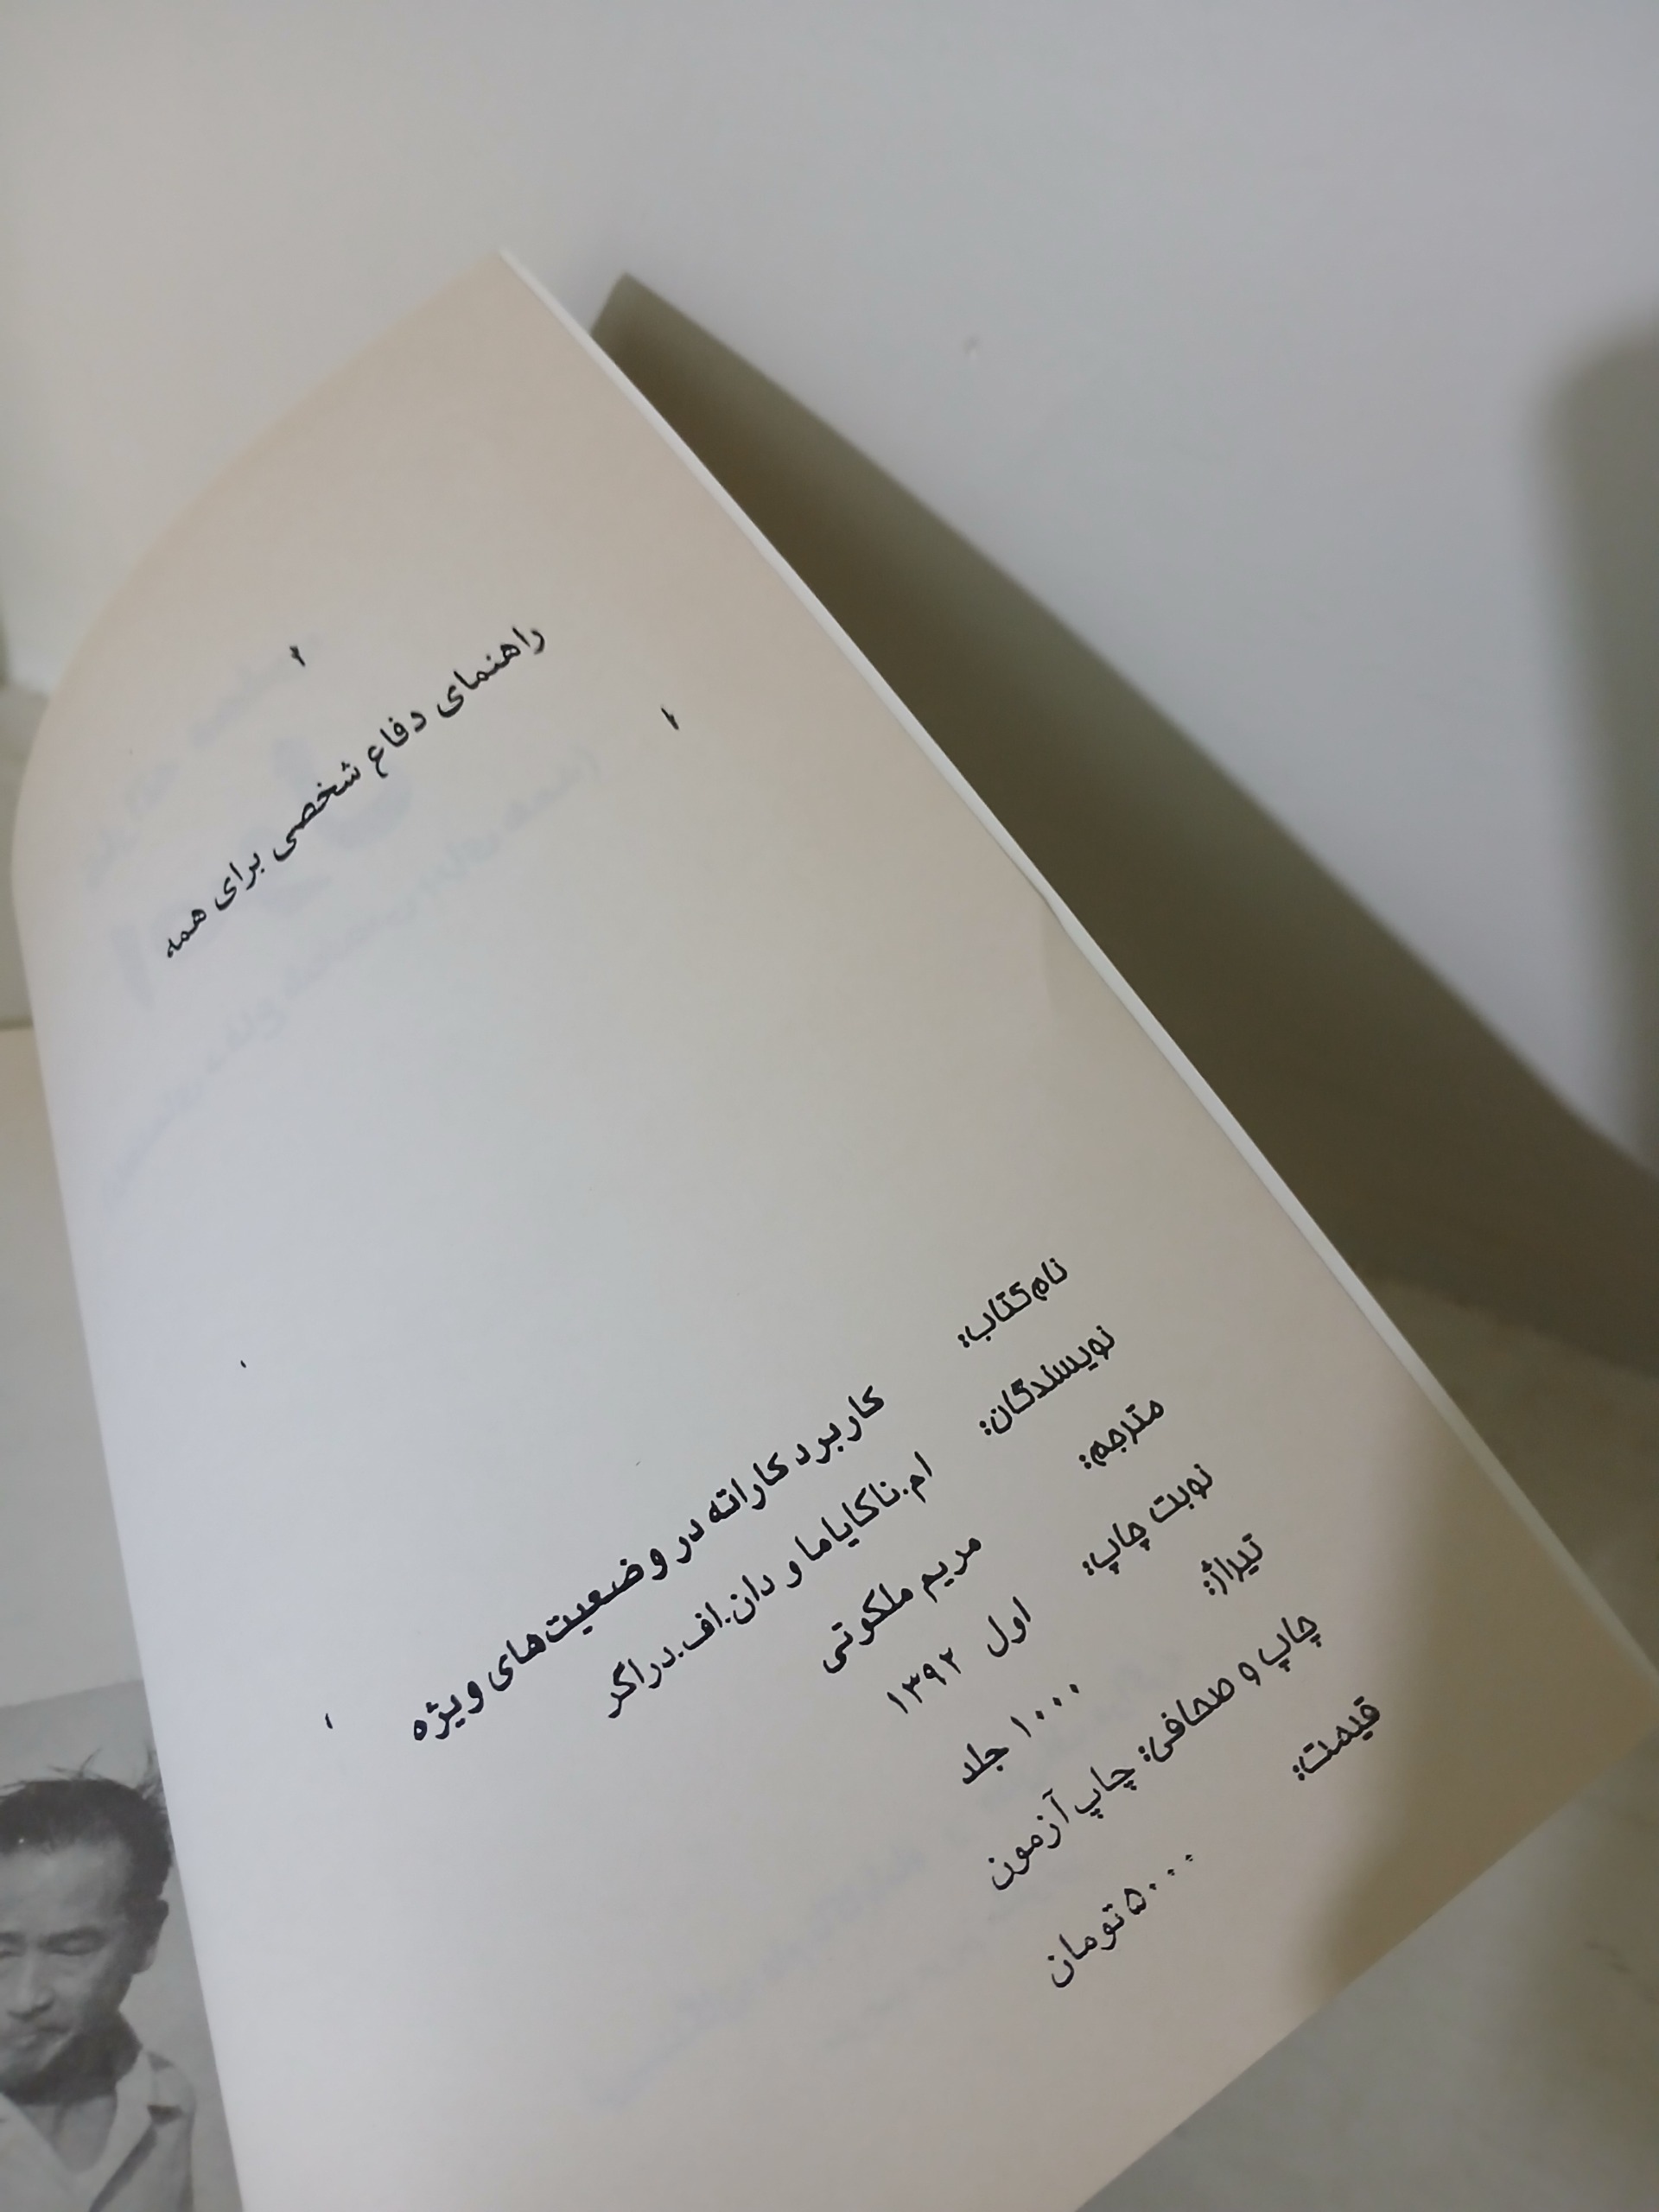 راهنمای دفاع شخصی برای همه
نام کتاب: کاربرد کاراته در وضعیت‌های ویژه
نویسندگان: ام.ناکایاما و دان.اف.دراگر
مترجم: مریم ملکوتی
نوبت چاپ: اول ۱۳۹۲
تیراژ: ۱۰۰۰ جلد
چاپ و صحافی: چاپ آزمون
قیمت: ۵۰۰۰ تومان